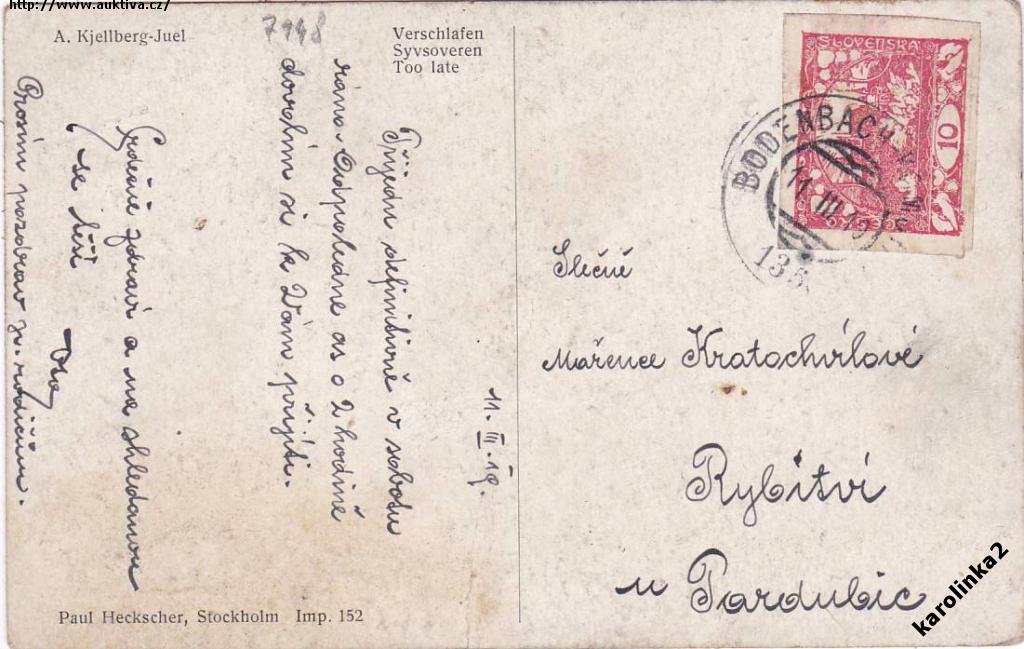 http://www.auktiva.cz/
A. Kjellberg-Juel
7948
Verschlafen
Syvsoveren
Too late
11. III. 19.
Přijedu definitivně v sobotu
ráno. Odpoledne as o 2 hodině
dovolím si k Vám přijíti.
Srdečně zdraví a na shledanou
se těší
Prosím pozdrav p. rodičům.
SLOVENSKA
10
BODENBACH
11 III 19
135
Slečně
Mařence Kratochvílové
Rybitví
u Pardubic
Paul Heckscher, Stockholm Imp. 152
karolinka2